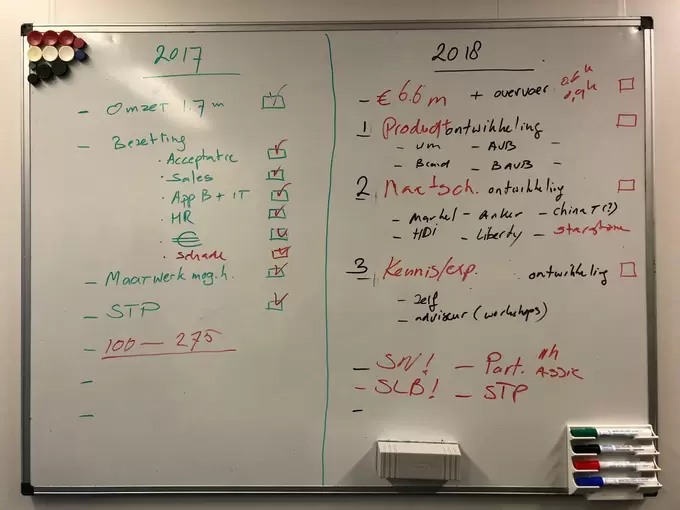 2017
- Omzet 1.7 m
- Bezetting
· Acceptatie
· Sales
· App B + IT
· HR
· €
· Schade
- Maatwerk mog.h.
- STP
- 100 — 275
-
-
2018
- € 6.6 m + overvoer
1 Productontwikkeling
- AVB
- BAVB -
2 Maatsch. ontwikkeling
- Markel - Anker - China T(?)
- HDi - Liberty - Starstone
3 Kennis/exp. ontwikkeling
- zelf
- adviseur (workshops)
- SN! - Part.
- SLB! - STP
-